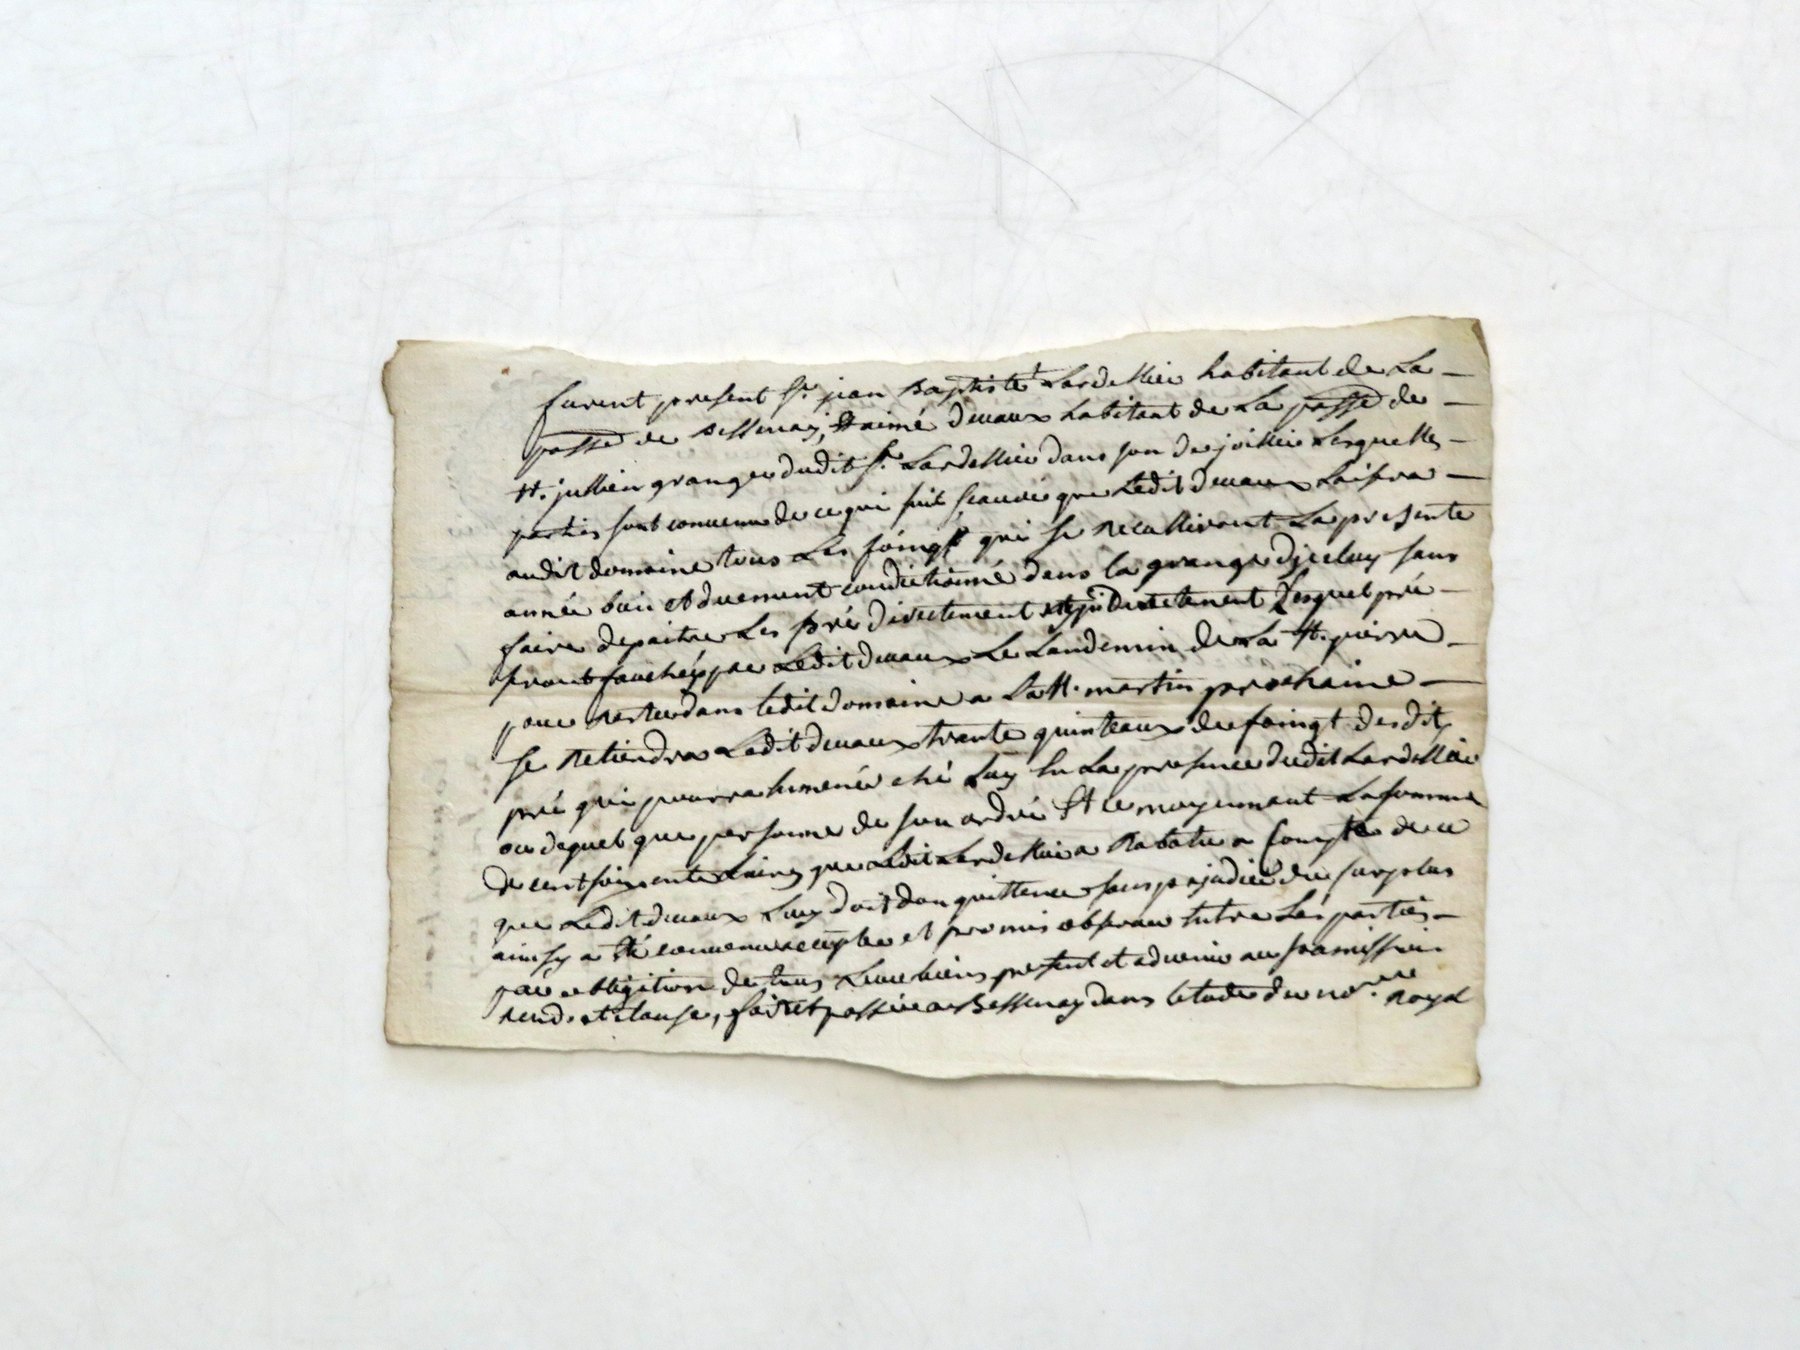 furent present Sr. jean Baptiste Lardellier habitant de La
passe de Bessenay, Et aimé devaux habitant de La passe de
St. jullien granger dudit Sr. Lardellier dans son de joillier Lesquelles
parties sont convenue de ce qui suit scavoir que Ledit devaux Laissera
audit domaine tous Les foingt qui se recullieront La presente
année bien et duement condictionné dans la grange d'jceluy sans
faire depaitre Les pré directement ny jndirectement Lesquel pré
seront fauchés par Ledit devaux Le Landemin de La St. pierre
pour rester dans ledit domaine a La St. martin prochaine
se retiendra Ledit devaux trente quinteaux de foingt desdit
pré qui pourra hemené ché Luy En La presence dudit Lardellier
ou dequel que personne de son ordre Et ce moyennant La somme
de cent soixente Livres que Ledit Lardellier a rabatu a compte de ce
que Ledit devaux Luy doit dont quittence sans prejudice du surplus
ainsy a Eté convenu accepter et promis observer Entre Les parties
par obligition de tous Leur biens present et advenir au soumission
rend. et clause, fait et passé a Bessenay dans letude du nore. royal